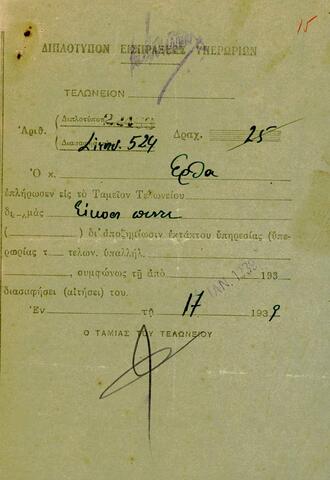 15
ΔΙΠΛΟΤΥΠΟΝ ΕΙΣΠΡΑΞΕΩΣ ΥΠΕΡΩΡΙΩΝ
ΤΕΛΩΝΕΙΟΝ
Ἀριθ. (Διπλοτύπου
(Διασαφ. 524 Δραχ. 25
Ὁ κ. Ερθα
ἐπλήρωσεν εἰς τὸ Ταμεῖον Τελωνείου
δι' μᾶς Εἴκοσι πέντε
( ) δι' ἀποζημίωσιν ἐκτάκτου ὑπηρεσίας (ὑπε-
ραρίας τ τελων. ὑπαλλήλ.
, συμφώνως τῇ ἀπὸ 193
διασαφήσει (αἰτήσει) του.
ΙΑΝ. 1939
Ἐν τῇ 17 1939
Ο ΤΑΜΙΑΣ ΤΟΥ ΤΕΛΩΝΕΙΟΥ